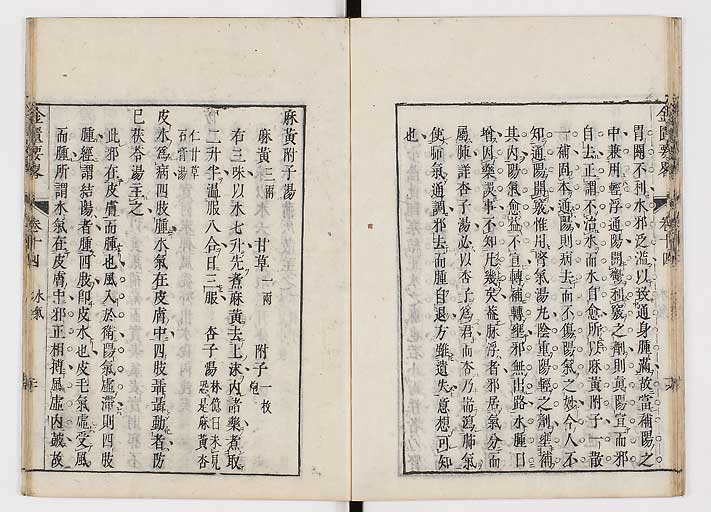 胃關不利水邪泛溢以致通身腫滿故當補陽之
中兼用輕浮通陽開鬱利竅之劑則眞陽宣而邪
自去正謂不治水而水自愈所以麻黃附子一散
一補固本通陽則病去而不傷陽氣之妙今人不
知通陽開竅惟用腎氣湯九陰重陽輕之劑準補
其內陽氣愈益不宣轉補轉壅邪無出路水腫日
增因藥誤事不知凡幾矣蓋脉浮者邪居氣分而
屬肺許杏子湯必以杏子為君而杏乃瀉肺氣
使肺氣通調邪去而腫自退方雖遺失意想可知
也
金匱要畧 卷十四
麻黃附子湯
麻黃三兩 甘草一兩 附子一枚炮
右三味以水七升先煮麻黃去上沫內諸藥煮取
二升半溫服八合日三服 杏子湯林億曰未見恐是麻黃杏
仁甘草石膏湯
皮水為病四肢腫水氣在皮膚中四肢聶聶動者防
已茯苓湯主之
此邪在皮膚而腫也風入於衛陽氣虛滯則四肢
腫經謂結陽者腫四肢卽皮水也皮毛氣虛受風
而腫所謂水氣在皮膚中邪正相搏風虛內皷故
金匱要畧 卷十四 水氣